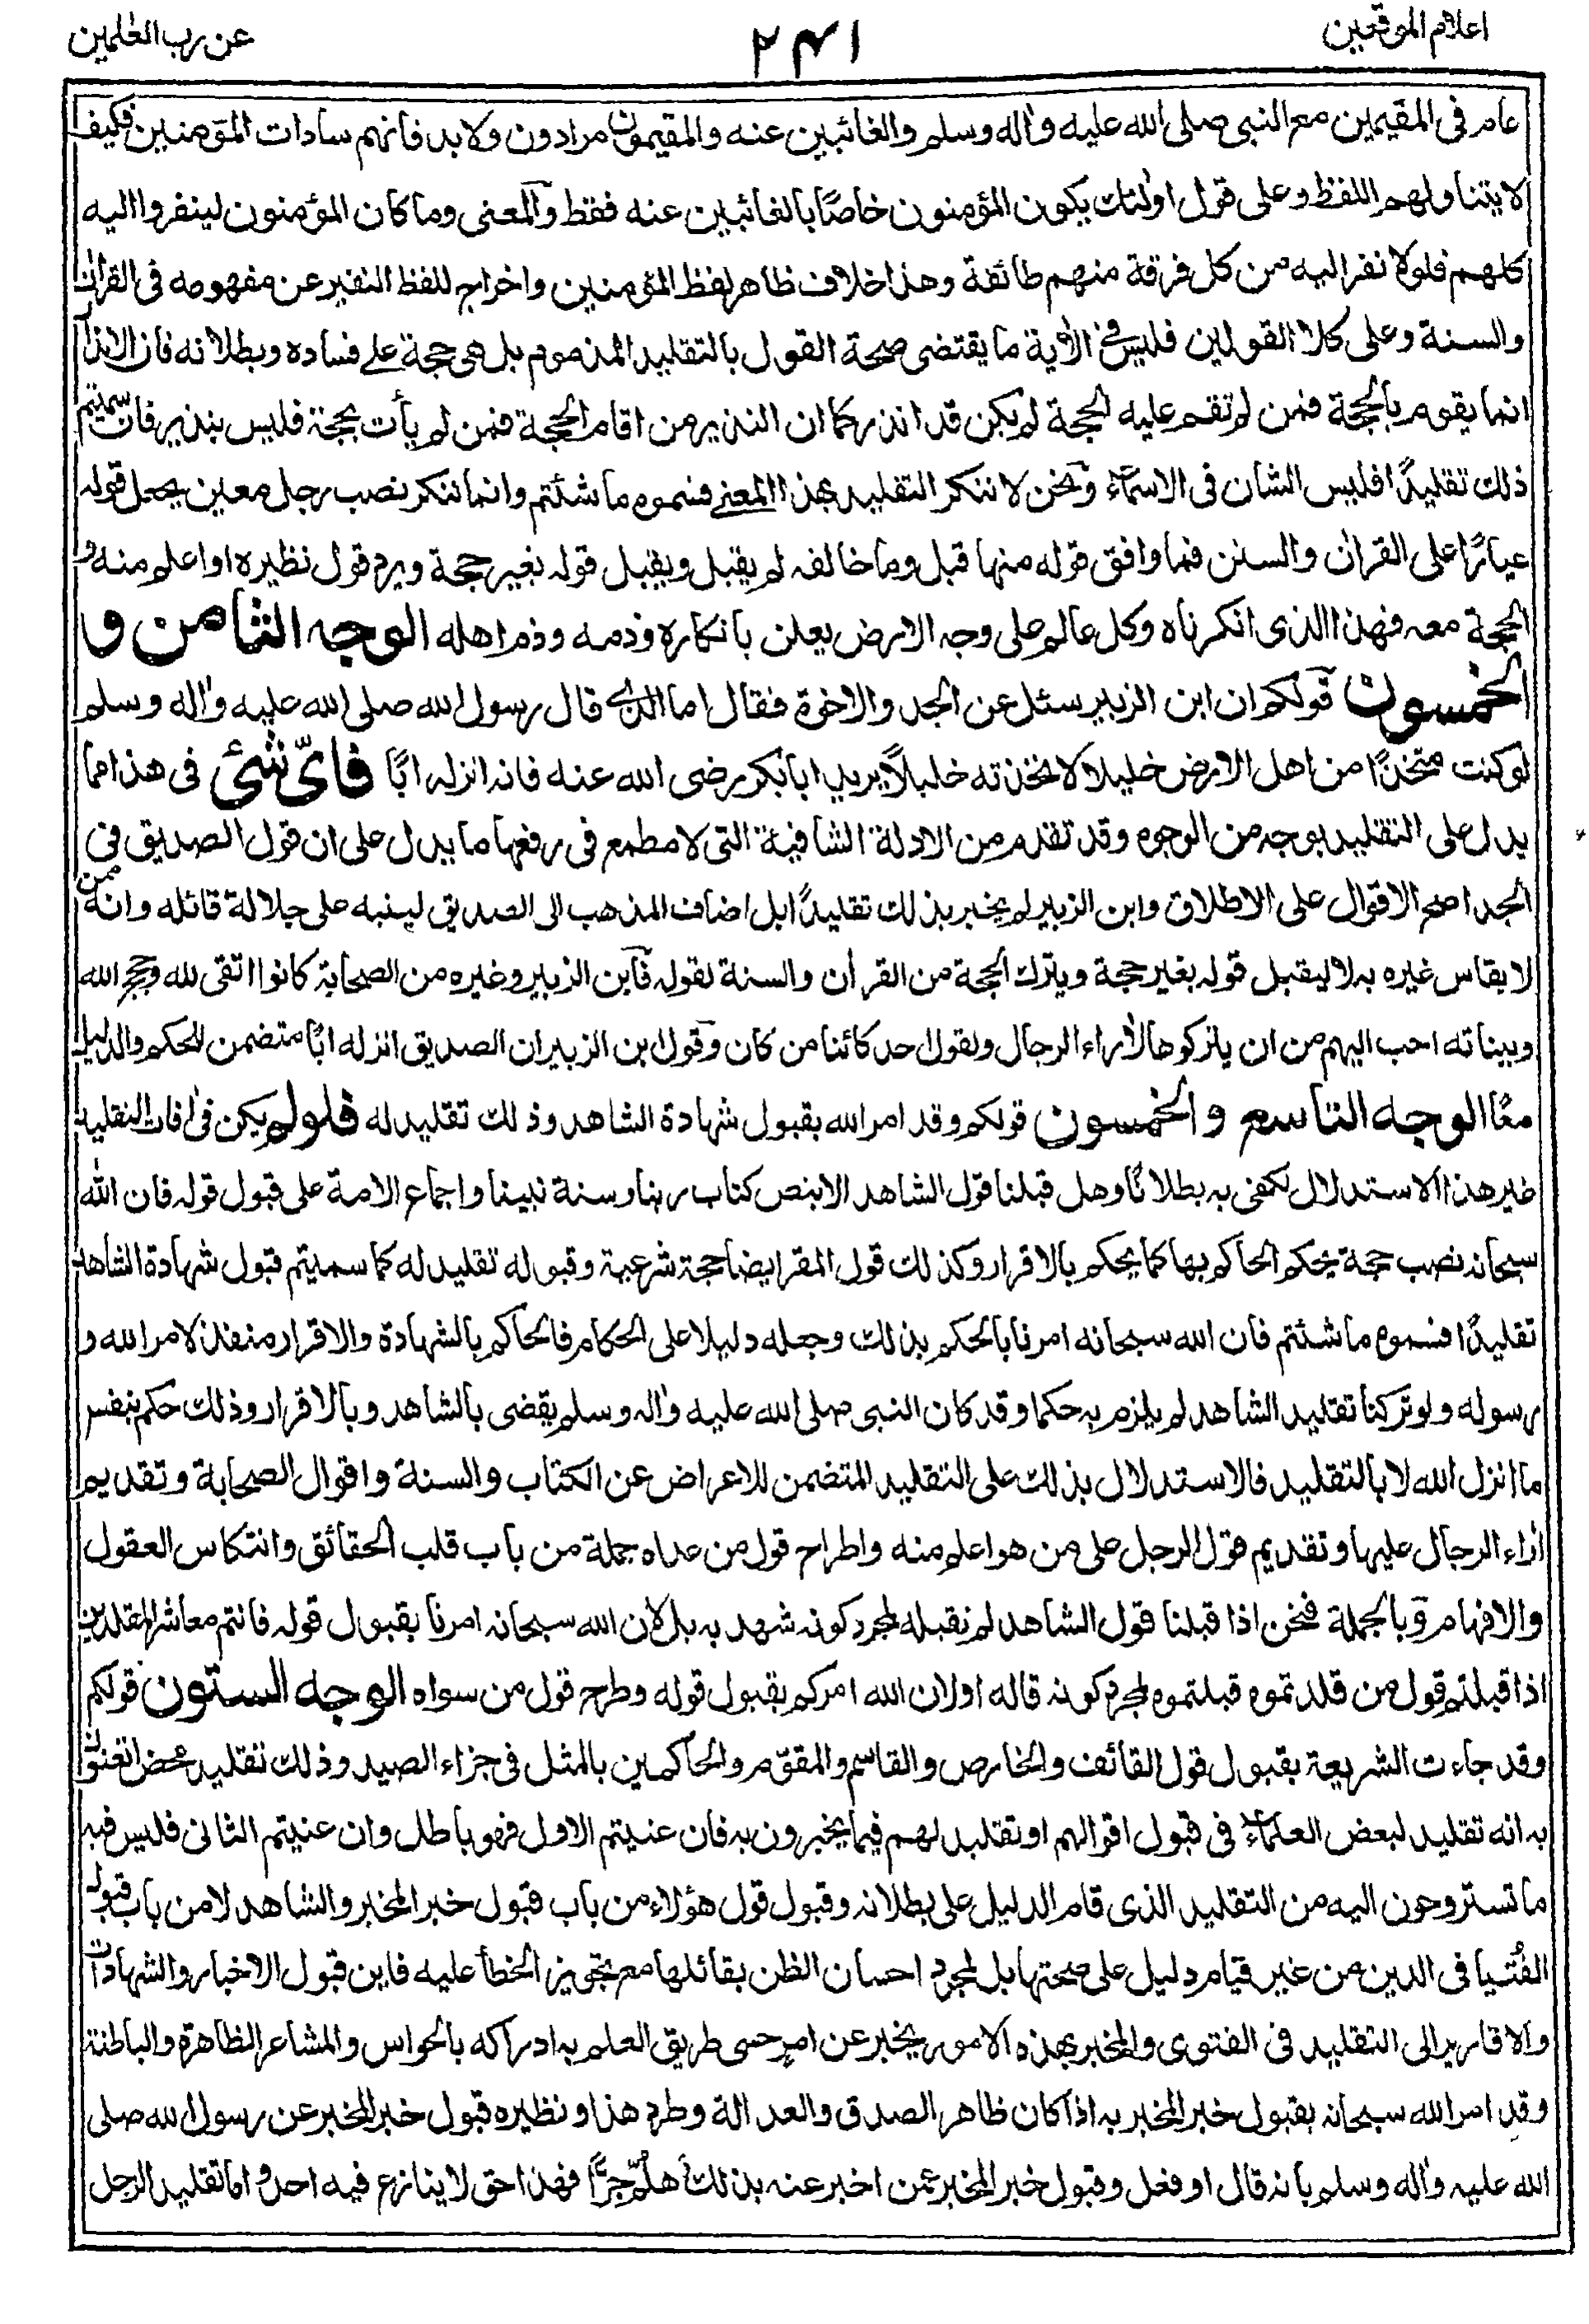 اعلام الموقعین
۲۴۱
عن رب العٰلمین
عام فی المقیمین مع النبی صلی الله علیه واٰله وسلم والغائبین عنه والمقیمون مرادون ولا بد فانهم سادات المؤمنین فکیف
لا یتناولهم اللفظ وعلی قول اولئك یکون المؤمنون خاصًا بالغائبین عنه فقط والمعنی وما کان المؤمنون لینفروا الیه
کلهم فلولا نفر الیه من کل فرقة منهم طائفة وهذا خلاف ظاهر لفظ المؤمنین واخراج للفظ النفیر عن مفهومه فی القراٰن
والسنة وعلی کلا القولین فلیس فی الاٰیة ما یقتضی صحة القول بالتقلید المذموم بل هی حجة علے فساده وبطلانه فان الانذار
انما یقوم بالحجة فمن لم تقم علیه الحجة لم یکن قد انذر کما ان النذیر من اقام الحجة فمن لم یأت بحجة فلیس بنذیر فان سمیتم
ذلك تقلیدًا فلیس الشان فی الاسماء ونحن لا ننکر التقلید بهذا المعنے فسموه ما شئتم وانما ننکر نصب رجل معین یجعل قوله
عیارًا علی القراٰن والسنن فما وافق قوله منها قبل وما خالفه لم یقبل ویقبل قوله بغیر حجة ویرد قول نظیره او اعلم منه و
الحجة معه فهذا الذی انکرناه وکل عالم علی وجه الارض یعلن بانکاره وذمه وذم اهله الوجه الثامن و
الخمسون قولکم ان ابن الزبیر سئل عن الجد والاخوة فقال اما الذی قال رسول الله صلی الله علیه واٰله وسلم
لو کنت متخذًا من اهل الارض خلیلا لاتخذته خلیلًا یرید ابا بکر رضی الله عنه فانه انزله ابًا فایّ شئ فی هذا مما
یدل علی التقلید بوجه من الوجوه وقد تقدم من الادلة الشافیة التی لا مطمع فی رفعها ما یدل علی ان قول الصدیق فی
الجد اصح الاقوال علی الاطلاق وابن الزبیر لم یخبر بذلك تقلیدًا بل اضاف المذهب الی الصدیق لینبه علی جلالة قائله وانه ممن
لا یقاس غیره به لا لیقبل قوله بغیر حجة ویترك الحجة من القراٰن والسنة لقوله فابن الزبیر وغیره من الصحابة کانوا اتقی لله وحجج الله
وبیناته احب الیهم من ان یترکوها لاٰراء الرجال ولقول احد کائنا من کان وقول ابن الزبیر ان الصدیق انزله ابًا متضمن للحکم والدلیل
معًا الوجه التاسع والخمسون قولکم وقد امر الله بقبول شهادة الشاهد وذلك تقلید له فلو لم یکن فی اٰفات التقلید
غیر هذا الاستدلال لکفی به بطلانًا وهل قبلنا قول الشاهد الا بنص کتاب ربنا وسنة نبینا واجماع الامة علی قبول قوله فان الله
سبحانه نصبه حجة یحکم الحاکم بها کما یحکم بالاقرار وکذلك قول المقر ایضا حجة شرعیة وقبوله تقلید له کما سمیتم قبول شهادة الشاهد
تقلیدًا فسموه ما شئتم فان الله سبحانه امرنا بالحکم بذلك وجعله دلیلا علی الحکام فالحاکم بالشهادة والاقرار منفذ لامر الله و
رسوله ولو ترکنا تقلید الشاهد لم یلزم به حکما وقد کان النبی صلی الله علیه واٰله وسلم یقضی بالشاهد وبالاقرار وذلك حکم بنفس
ما انزل الله لا بالتقلید فالاستدلال بذلك علی التقلید المتضمن للاعراض عن الکتاب والسنة واقوال الصحابة وتقدیم
اٰراء الرجال علیها وتقدیم قول الرجل علی من هو اعلم منه واطراح قول من عداه جملة من باب قلب الحقائق وانتکاس العقول
والافهام وبالجملة فنحن اذا قبلنا قول الشاهد لم نقبله لمجرد کونه شهد به بل لان الله سبحانه امرنا بقبول قوله فانتم معاشر المقلدین
اذا قبلتم قول من قلدتموه قبلتموه لمجرد کونه قاله او لان الله امرکم بقبول قوله وطرح قول من سواه الوجه الستون قولکم
وقد جاءت الشریعة بقبول قول القائف والخارص والقاسم والمقوّم والحاکمین بالمثل فی جزاء الصید وذلك تقلید محض اتعنون
به انه تقلید لبعض العلماء فی قبول اقوالهم او تقلید لهم فیما یخبرون به فان عنیتم الاول فهو باطل وان عنیتم الثانی فلیس فیه
ما تستروحون الیه من التقلید الذی قام الدلیل علی بطلانه وقبول قول هؤلاء من باب قبول خبر المخبر والشاهد لا من باب قبول
الفُتیا فی الدین من غیر قیام دلیل علی صحتها بل لمجرد احسان الظن بقائلها مع تجویز الخطأ علیه فاین قبول الاخبار والشهادات
والاقاریر الی التقلید فی الفتوی والمخبر بهذه الامور یخبر عن امرٍ حسی طریق العلم به ادراکه بالحواس والمشاعر الظاهرة والباطنة
وقد امر الله سبحانه بقبول خبر المخبر به اذا کان ظاهر الصدق والعدالة وطرد هذا ونظیره قبول خبر المخبر عن رسول الله صلی
الله علیه واٰله وسلم بانه قال او فعل وقبول خبر المخبر عمن اخبر عنه بذلك وهلُمّ جرًّا فهذا حق لا ینازع فیه احد واما تقلید الرجل